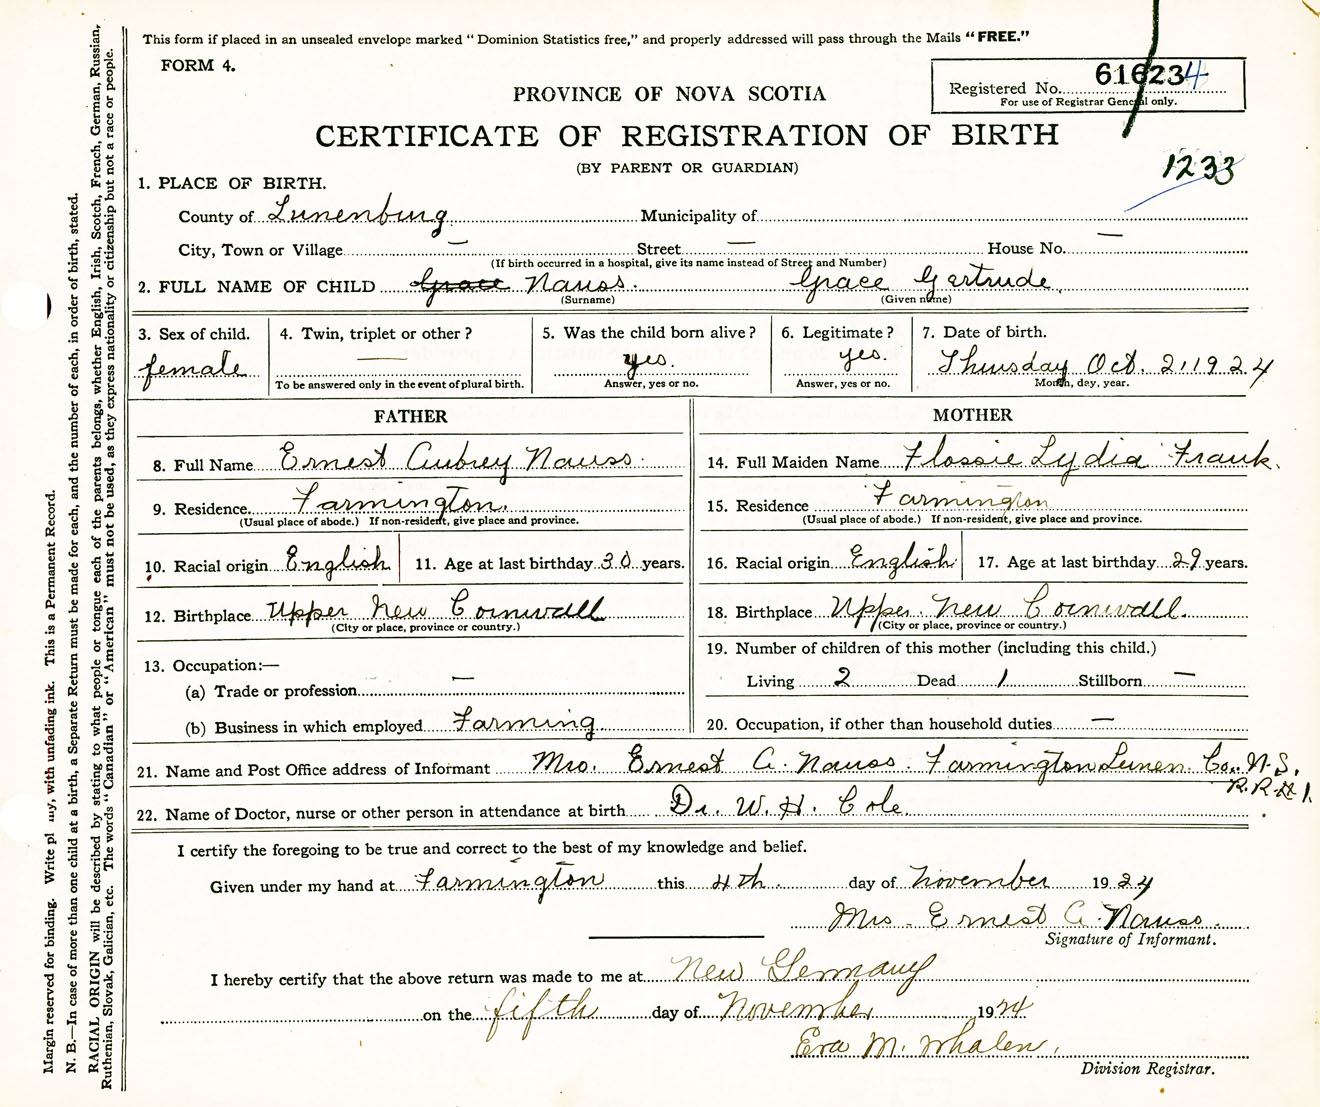 This form if placed in an unsealed envelope marked "Dominion Statistics free," and properly addressed will pass through the Mails "FREE."
FORM 4.
Registered No. 616234
For use of Registrar General only.
PROVINCE OF NOVA SCOTIA
CERTIFICATE OF REGISTRATION OF BIRTH
(BY PARENT OR GUARDIAN)
1233
1. PLACE OF BIRTH.
County of Lunenburg Municipality of
City, Town or Village — Street — House No. —
(If birth occurred in a hospital, give its name instead of Street and Number)
2. FULL NAME OF CHILD Grace Nauss. Grace Gertrude
(Surname) (Given name)
3. Sex of child. 4. Twin, triplet or other? 5. Was the child born alive? 6. Legitimate? 7. Date of birth.
female — yes. yes. Thursday Oct. 2, 1924
To be answered only in the event of plural birth. Answer, yes or no. Answer, yes or no. Month, day, year.
FATHER
8. Full Name Ernest Aubrey Nauss.
9. Residence. Farmington.
(Usual place of abode.) If non-resident, give place and province.
10. Racial origin English 11. Age at last birthday 30 years.
12. Birthplace Upper New Cornwall
(City or place, province or country.)
13. Occupation:—
(a) Trade or profession —
(b) Business in which employed Farming
MOTHER
14. Full Maiden Name Flossie Lydia Frank.
15. Residence Farmington
(Usual place of abode.) If non-resident, give place and province.
16. Racial origin English 17. Age at last birthday 29 years.
18. Birthplace Upper New Cornwall.
(City or place, province or country.)
19. Number of children of this mother (including this child.)
Living 2 Dead 1 Stillborn —
20. Occupation, if other than household duties —
21. Name and Post Office address of Informant Mrs. Ernest A. Nauss. Farmington Lunen. Co. N.S.
R.R.#1.
22. Name of Doctor, nurse or other person in attendance at birth Dr. W. H. Cole.
I certify the foregoing to be true and correct to the best of my knowledge and belief.
Given under my hand at Farmington this 4th. day of November 1924
Mrs. Ernest A. Nauss.
Signature of Informant.
I hereby certify that the above return was made to me at New Germany
on the fifth day of November 1924
Eva M. Whalen.
Division Registrar.
Margin reserved for binding. Write plainly, with unfading ink. This is a Permanent Record.
N. B.—In case of more than one child at a birth, a Separate Return must be made for each, and the number of each, in order of birth, stated.
RACIAL ORIGIN will be described by stating to what people or tongue each of the parents belongs, whether English, Irish, Scotch, French, German, Russian,
Ruthenian, Slovak, Galician, etc. The words "Canadian" or "American" must not be used, as they express nationality or citizenship but not a race or people.